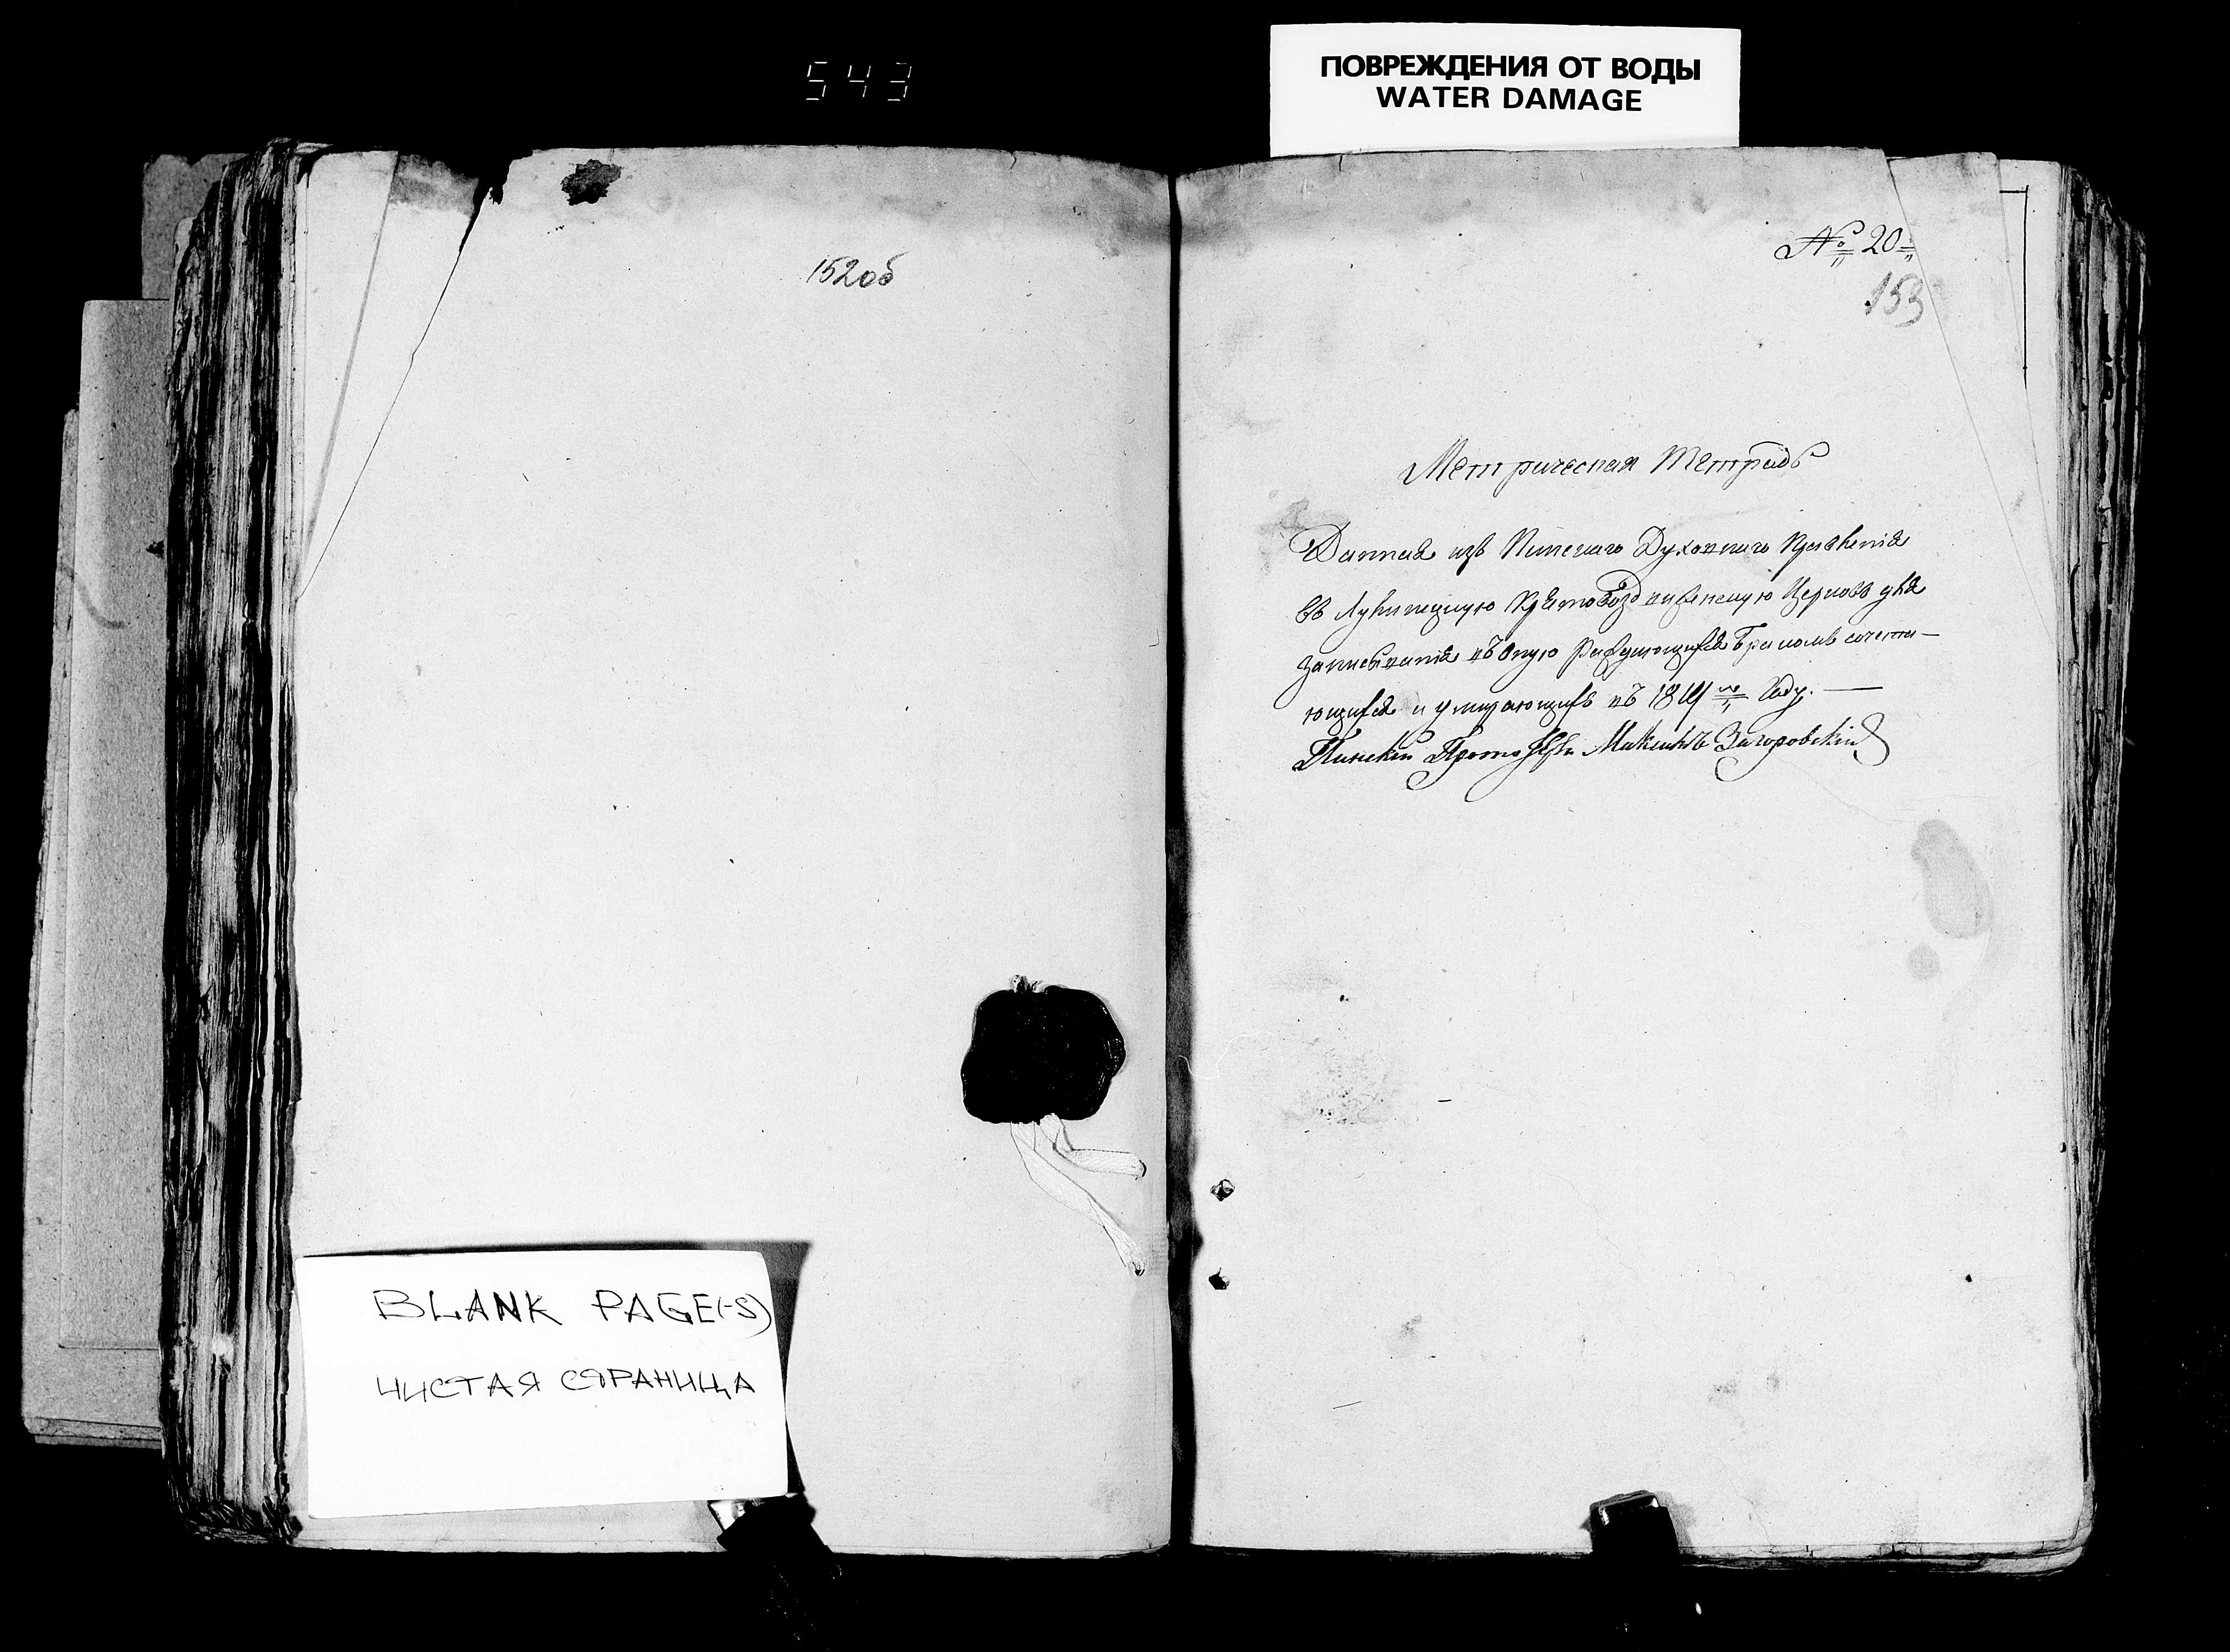 543
ПОВРЕЖДЕНИЯ ОТ ВОДЫ
WATER DAMAGE
152об
№ 20
153
Метрическая Тетрадь
Данная изъ Пинскаго Духовнаго Правленія
въ Крестовоздвиженскую Церковь для
записыванія въ оную раждающихся Бракомъ сочета-
ющихся и умирающихъ въ Году. —
Пинскій Загоровскій
BLANK PAGE(-S)
ЧИСТАЯ СТРАНИЦА